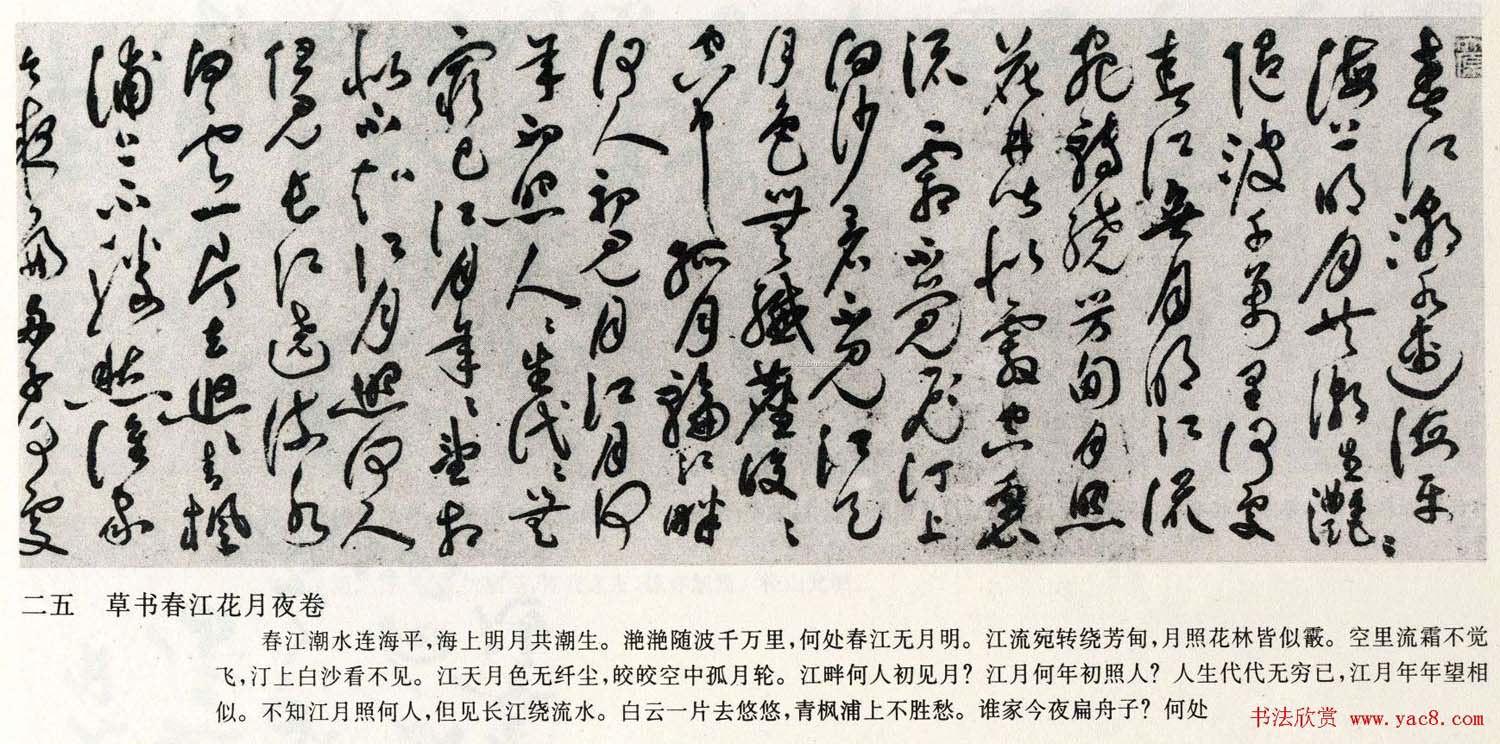 春江潮水連海平
海上明月共潮生灩〻
隨波千萬里何處
春江無月明江流
宛轉繞芳甸月照
花林皆似霰空裏
流霜不覺飛汀上
白沙看不見江天
月色無纖塵皎〻
空中孤月輪江畔
何人初見月江月何
年初照人〻生代〻無
窮已江月年〻望相
似不知江月照何人
但見長江遶流水
白雲一片去悠〻青楓
浦上不勝愁誰家
今夜扁舟子何處
二五 草书春江花月夜卷
春江潮水连海平,海上明月共潮生。滟滟随波千万里,何处春江无月明。江流宛转绕芳甸,月照花林皆似霰。空里流霜不觉
飞,汀上白沙看不见。江天月色无纤尘,皎皎空中孤月轮。江畔何人初见月?江月何年初照人?人生代代无穷已,江月年年望相
似。不知江月照何人,但见长江绕流水。白云一片去悠悠,青枫浦上不胜愁。谁家今夜扁舟子?何处
书法欣赏 www.yac8.com